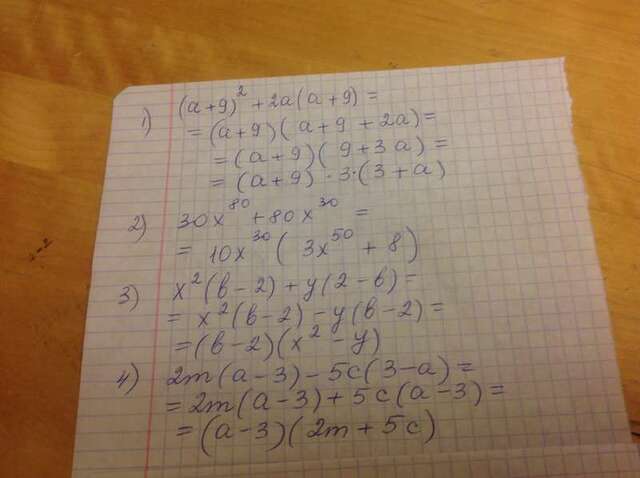 1) (a+9)² + 2a(a+9) =
= (a+9)(a+9+2a) =
= (a+9)(9+3a) =
= (a+9)·3·(3+a)
2) 30x⁸⁰ + 80x³⁰ =
= 10x³⁰(3x⁵⁰ + 8)
3) x²(в-2) + y(2-в) =
= x²(в-2) - y(в-2) =
= (в-2)(x² - y)
4) 2m(a-3) - 5c(3-a) =
= 2m(a-3) + 5c(a-3) =
= (a-3)(2m+5c)